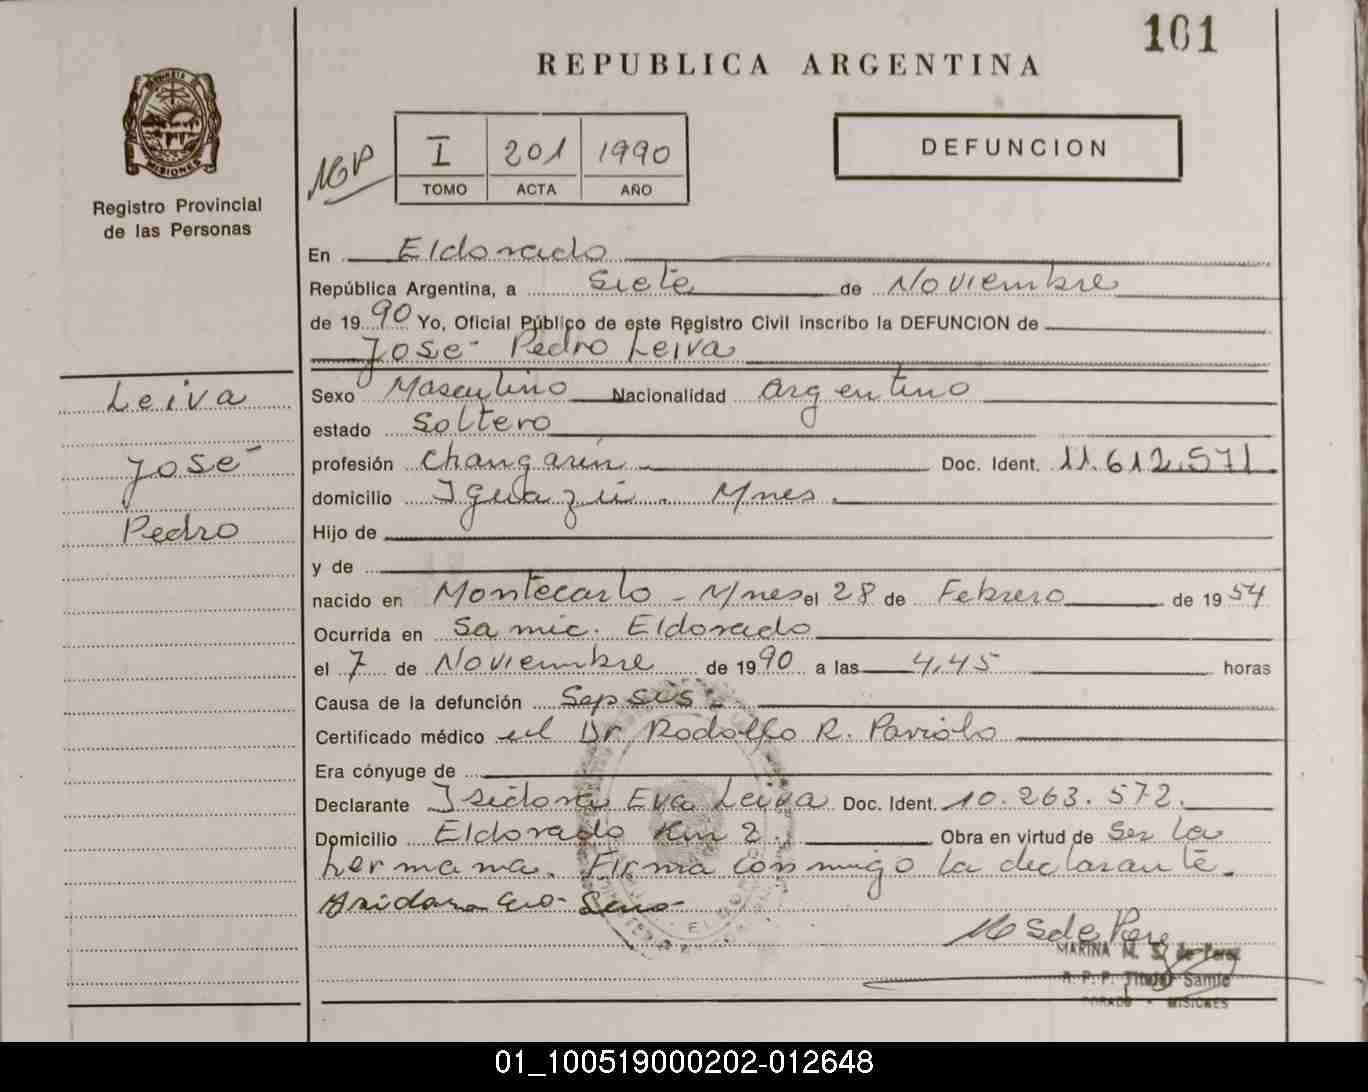 101
REPUBLICA ARGENTINA
PROVINCIA DE MISIONES
Registro Provincial
de las Personas
I 201 1990
TOMO ACTA AÑO
DEFUNCION
En Eldorado
República Argentina, a Siete de Noviembre
de 1990 Yo, Oficial Público de este Registro Civil inscribo la DEFUNCION de
José Pedro Leiva
Leiva
José
Pedro
Sexo Masculino Nacionalidad Argentino
estado Soltero
profesión Changarín Doc. Ident. 11.612.571
domicilio Iguazú. Mnes.
Hijo de
y de
nacido en Montecarlo - Mnes el 28 de Febrero de 1954
Ocurrida en Samic. Eldorado
el 7 de Noviembre de 1990 a las 4,45 horas
Causa de la defunción Sepsis.
Certificado médico el Dr Rodolfo R.
Era cónyuge de
Declarante Isidora Eva Leiva Doc. Ident. 10.263.572.
Domicilio Eldorado Km 2. Obra en virtud de Ser la
hermana. Firma conmigo la declarante.
MARINA M. S. de Perez
R. P. P. Titular Samic
MISIONES
01_100519000202-012648